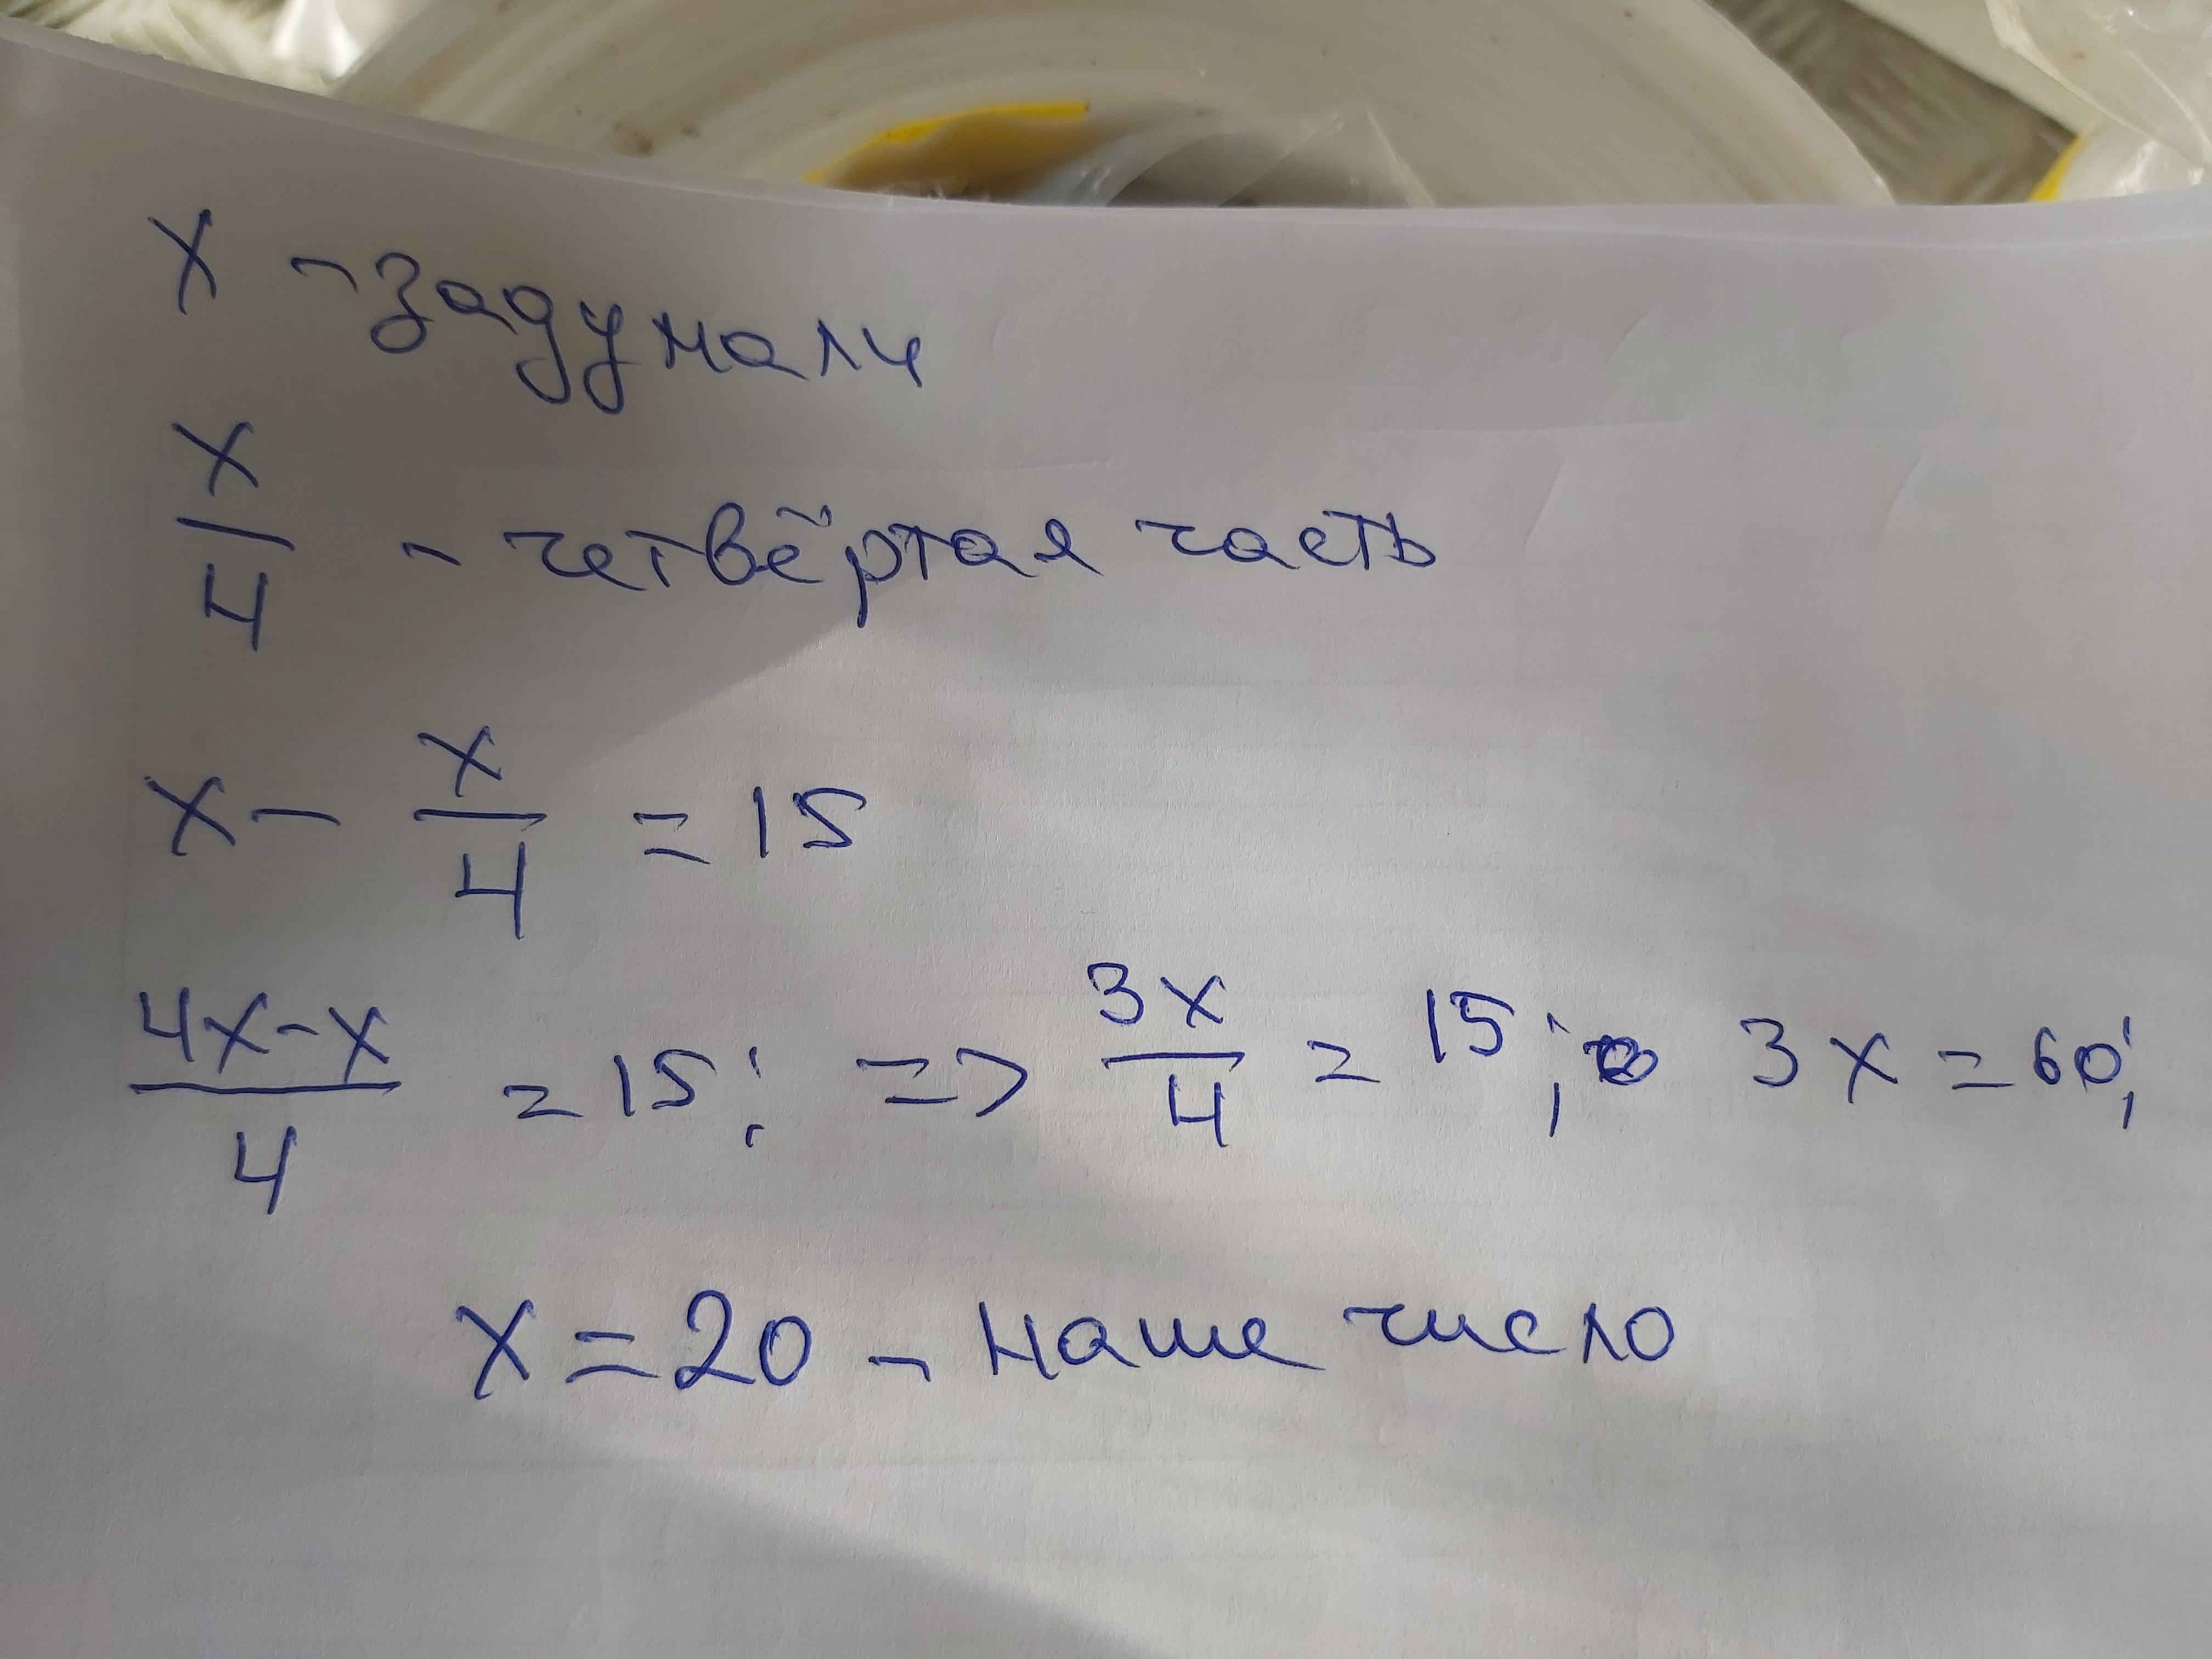 x - задумали
x/4 - четвёртая часть
x - x/4 = 15
(4x-x)/4 = 15; => 3x/4 = 15; 3x = 60;
x = 20 - наше число